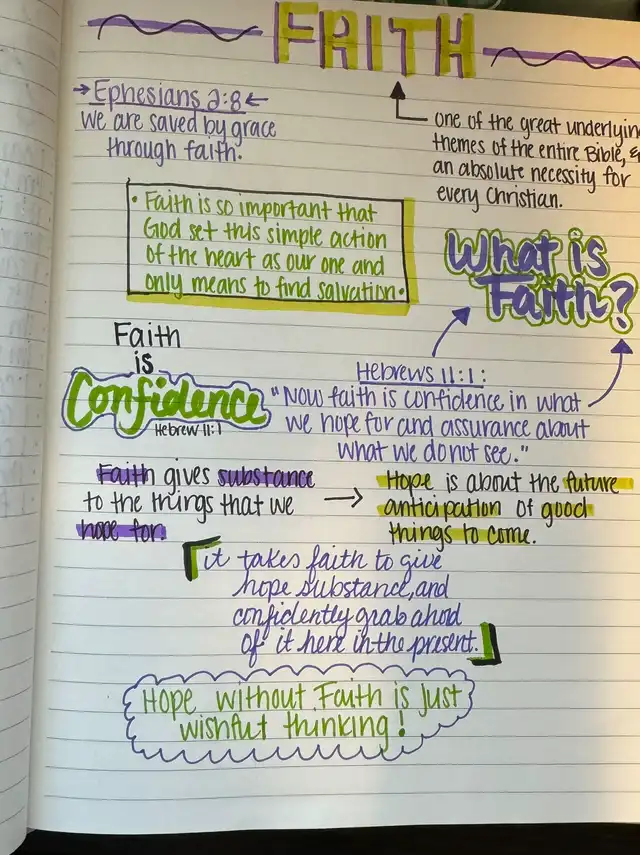 FAITH
→Ephesians 2:8←
we are saved by grace
through faith.
one of the great underlying
themes of the entire Bible, &
an absolute necessity for
every Christian.
• Faith is so important that
God set this simple action
of the heart as our one and
only means to find salvation•
What is
Faith?
Faith
is
Confidence
Hebrew 11:1
Hebrews 11:1:
"Now faith is confidence in what
we hope for and assurance about
what we do not see."
Faith gives substance
to the things that we
hope for.
→ Hope is about the future
anticipation of good
things to come.
it takes faith to give
hope substance, and
confidently grab ahold
of it here in the present.
Hope without Faith is just
wishful thinking!